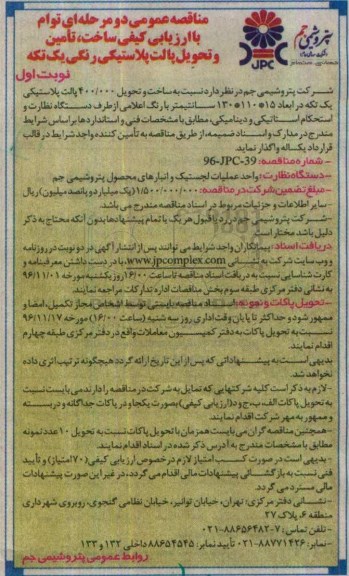 پتروشیمی جم
JPC
مناقصه عمومی دو مرحله‌ای توأم
با ارزیابی کیفی ساخت، تأمین
و تحویل پالت پلاستیکی رنگی یک تکه
نوبت اول
شرکت پتروشیمی جم در نظر دارد نسبت به ساخت و تحویل ۴۰۰/۰۰۰ پالت پلاستیکی
یک تکه در ابعاد ۱۵*۱۱۰*۱۳۰ سانتیمتر با رنگ اعلامی از طرف دستگاه نظارت و
استحکام استاتیکی و دینامیکی، مطابق با مشخصات فنی و استانداردها بر اساس شرایط
مندرج در مدارک و اسناد ضمیمه، از طریق مناقصه به تأمین کننده واجد شرایط در قالب
قرارداد یکساله واگذار نماید.
- شماره مناقصه: 96-JPC-39
- دستگاه نظارت: واحد عملیات لجستیک و انبارهای محصول پتروشیمی جم
- مبلغ تضمین شرکت در مناقصه: ۱/۵۰۰/۰۰۰/۰۰۰ (یک میلیارد و پانصد میلیون) ریال
- سایر اطلاعات و جزئیات مربوط در اسناد مناقصه مندرج می باشد.
- شرکت پتروشیمی جم در رد یا قبول هر یک یا تمام پیشنهادها بدون آنکه محتاج به ذکر
دلیل باشد مختار است.
دریافت اسناد: پیمانکاران واجد شرایط می توانند پس از انتشار آگهی در دو نوبت در روزنامه
و وب سایت شرکت به نشانی www.jpcomplex.com، با در دست داشتن معرفینامه و
کارت شناسایی نسبت به دریافت اسناد مناقصه تا ساعت ۱۶:۰۰ روز یکشنبه مورخه ۹۶/۱۱/۰۱
به نشانی دفتر مرکزی طبقه سوم بخش مناقصات اداره تدارکات مراجعه نمایند.
- تحویل پاکات و نمونه: اسناد مناقصه بایستی توسط اشخاص مجاز تکمیل، امضا و
ممهور شود و حداکثر تا پایان وقت اداری روز سه شنبه (ساعت ۱۶:۰۰) مورخه ۹۶/۱۱/۱۷
نسبت به تحویل پاکات به دفتر کمیسیون معاملات واقع در دفتر مرکزی طبقه چهارم
اقدام نمایند.
بدیهی است به پیشنهاداتی که پس از این تاریخ ارائه گردد هیچگونه ترتیب اثری داده
نخواهد شد.
- لازم به ذکر است کلیه شرکتهایی که تمایل به شرکت در مناقصه را دارند می بایست نسبت
به تحویل پاکات الف، ب، ج و د (ارزیابی کیفی) بصورت یکجا و در پاکات جداگانه و در بسته
و ممهور به مهر شرکت اقدام نمایند.
- همچنین مناقصه گران می بایست همزمان با تحویل پاکات نسبت به تحویل ۱۰ عدد نمونه
مطابق با مشخصات مندرج به آدرس ذکر شده در اسناد اقدام نمایند.
- بدیهی است در صورت کسب امتیاز لازم در خصوص ارزیابی کیفی (۷۰ امتیاز) و تأیید
فنی نسبت به بازگشائی پیشنهادات مالی اقدام می گردد، در غیر این صورت پیشنهادات
مالی مسترد می گردد.
- نشانی دفتر مرکزی: تهران، خیابان توانیر، خیابان نظامی گنجوی، روبروی شهرداری
منطقه ۶، پلاک ۲۷
- تلفن تماس: ۷-۸۸۶۵۶۴۸۲-۰۲۱
- نمابر: ۸۸۷۷۱۴۲۶-۰۲۱ تأیید نمابر: ۸۸۶۵۴۵۴۵ داخلی ۱۳۲ و ۱۳۳
روابط عمومی پتروشیمی جم